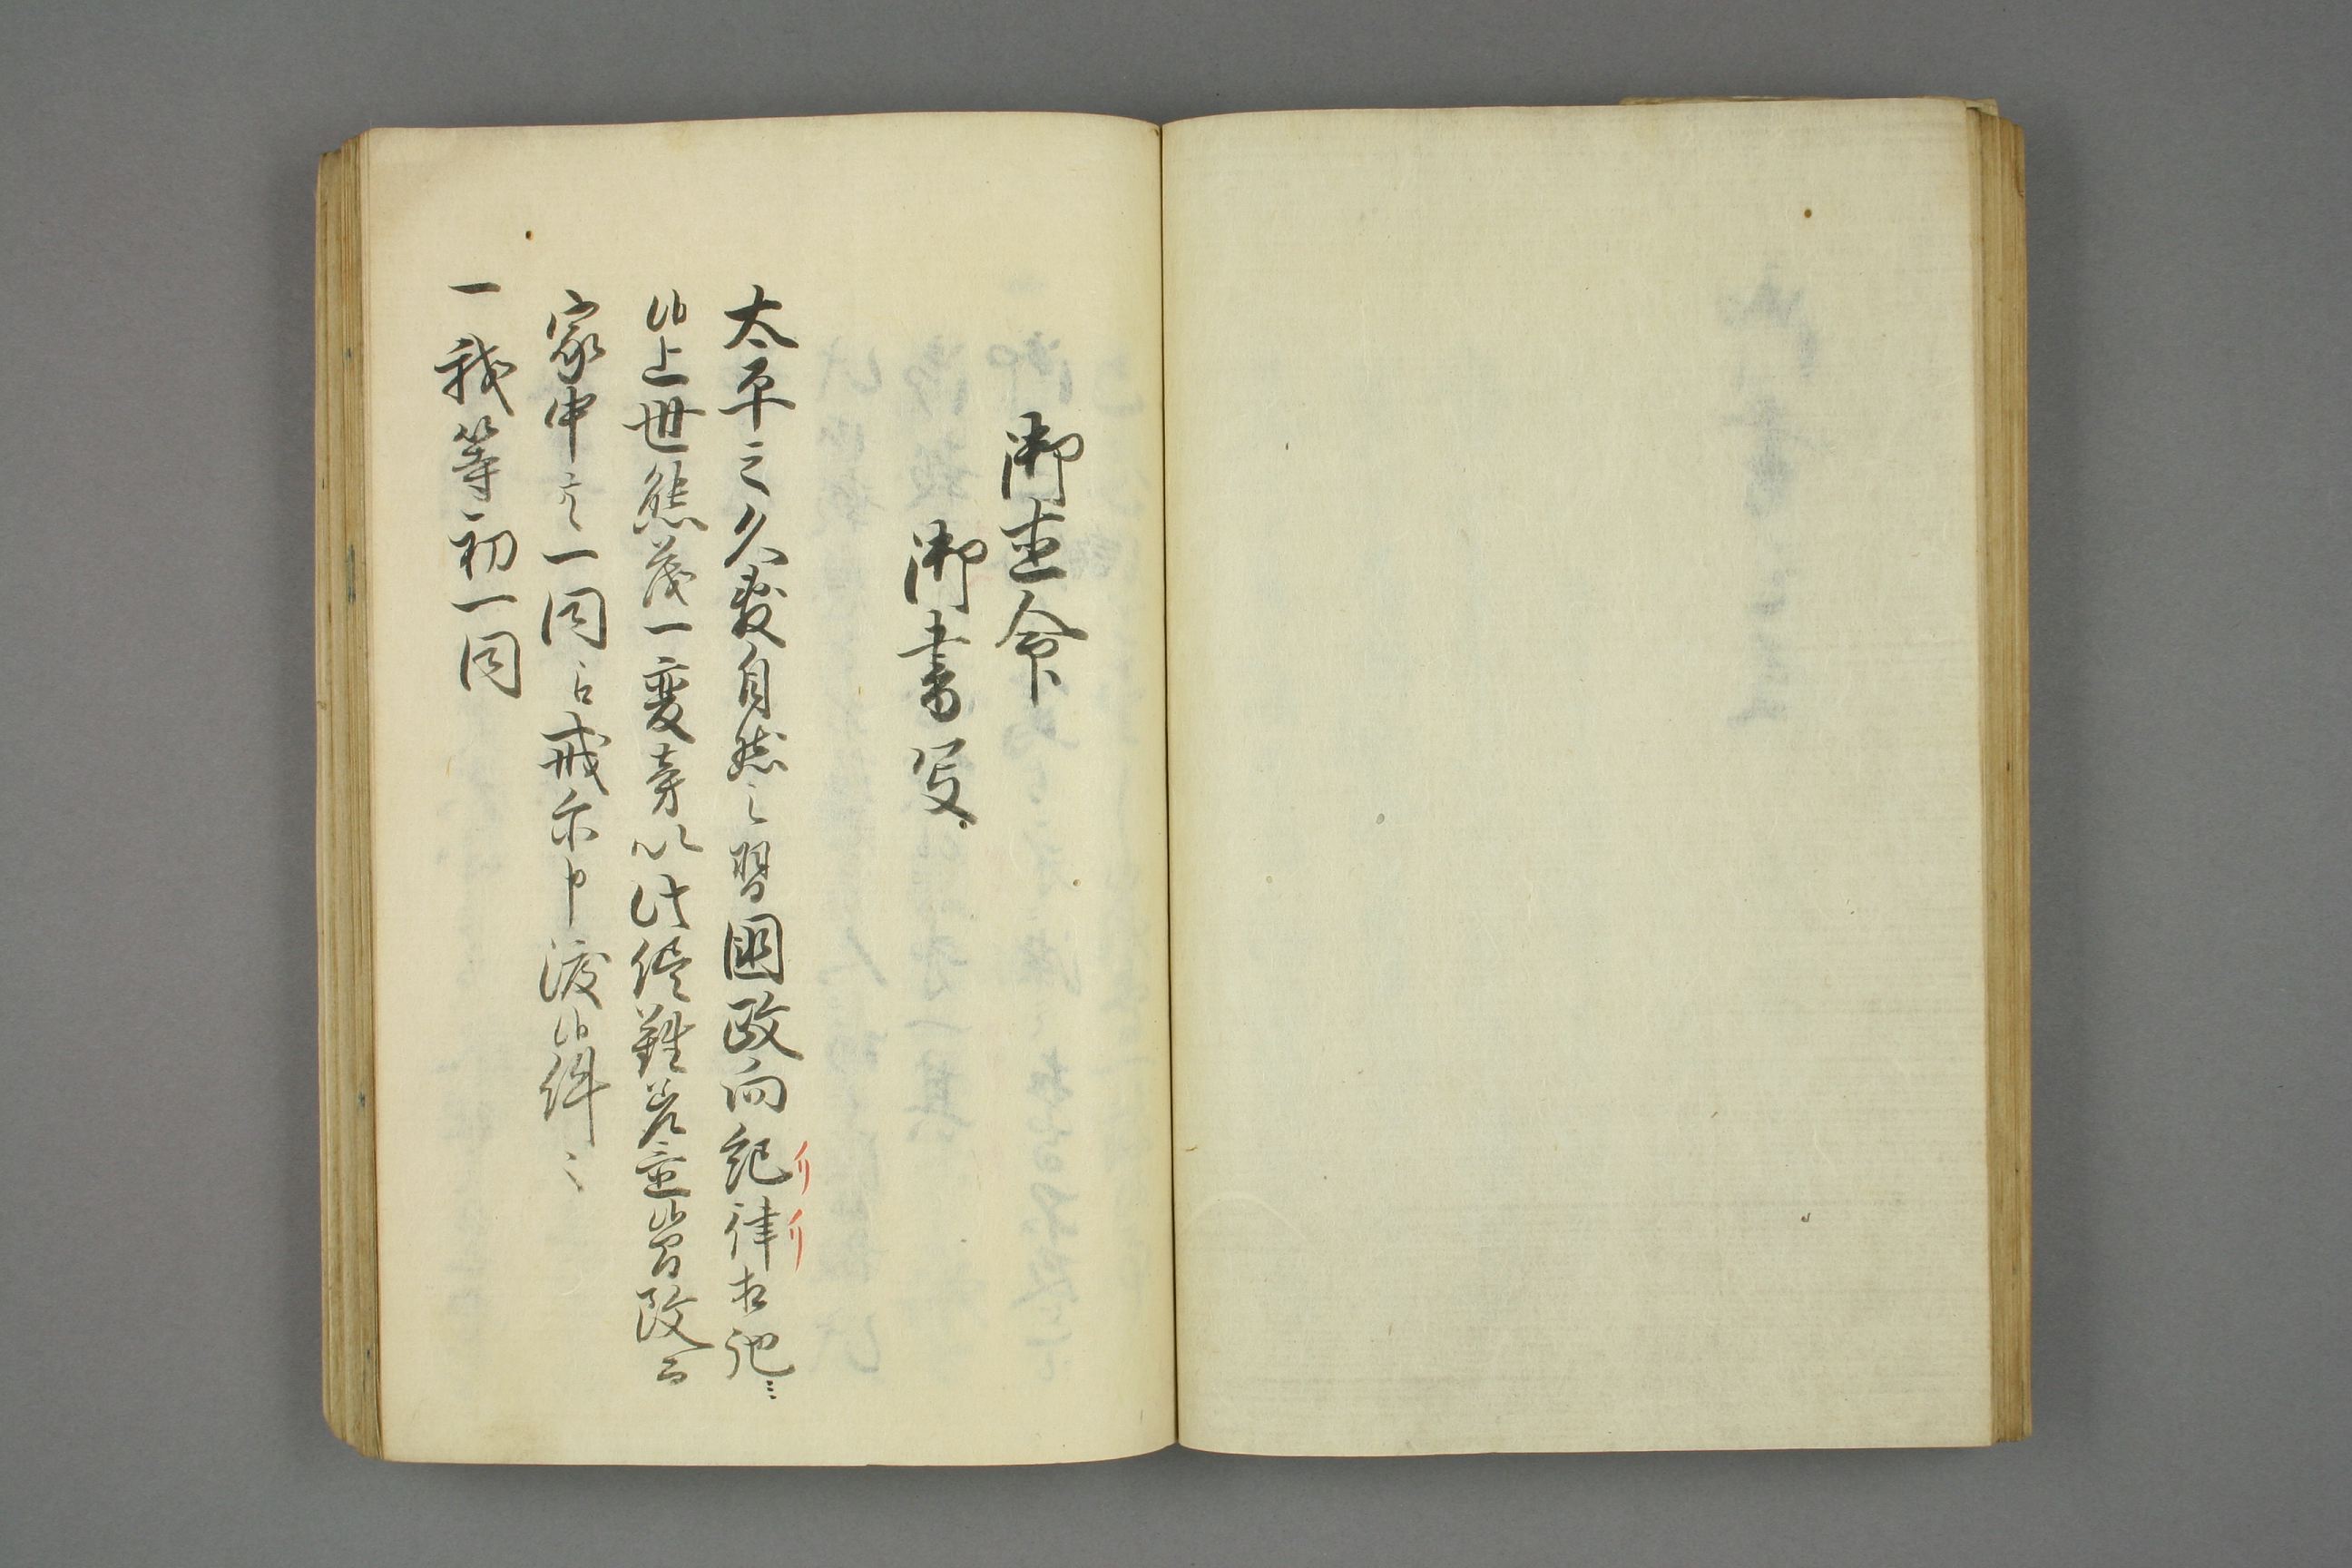 御直命
御書写
太平之久敷自然之習国政向紀律相弛ミ
候上世態茂一変旁以此侭難差置候皆改而
家中之一同江戒示申渡候件々
一我等初一同